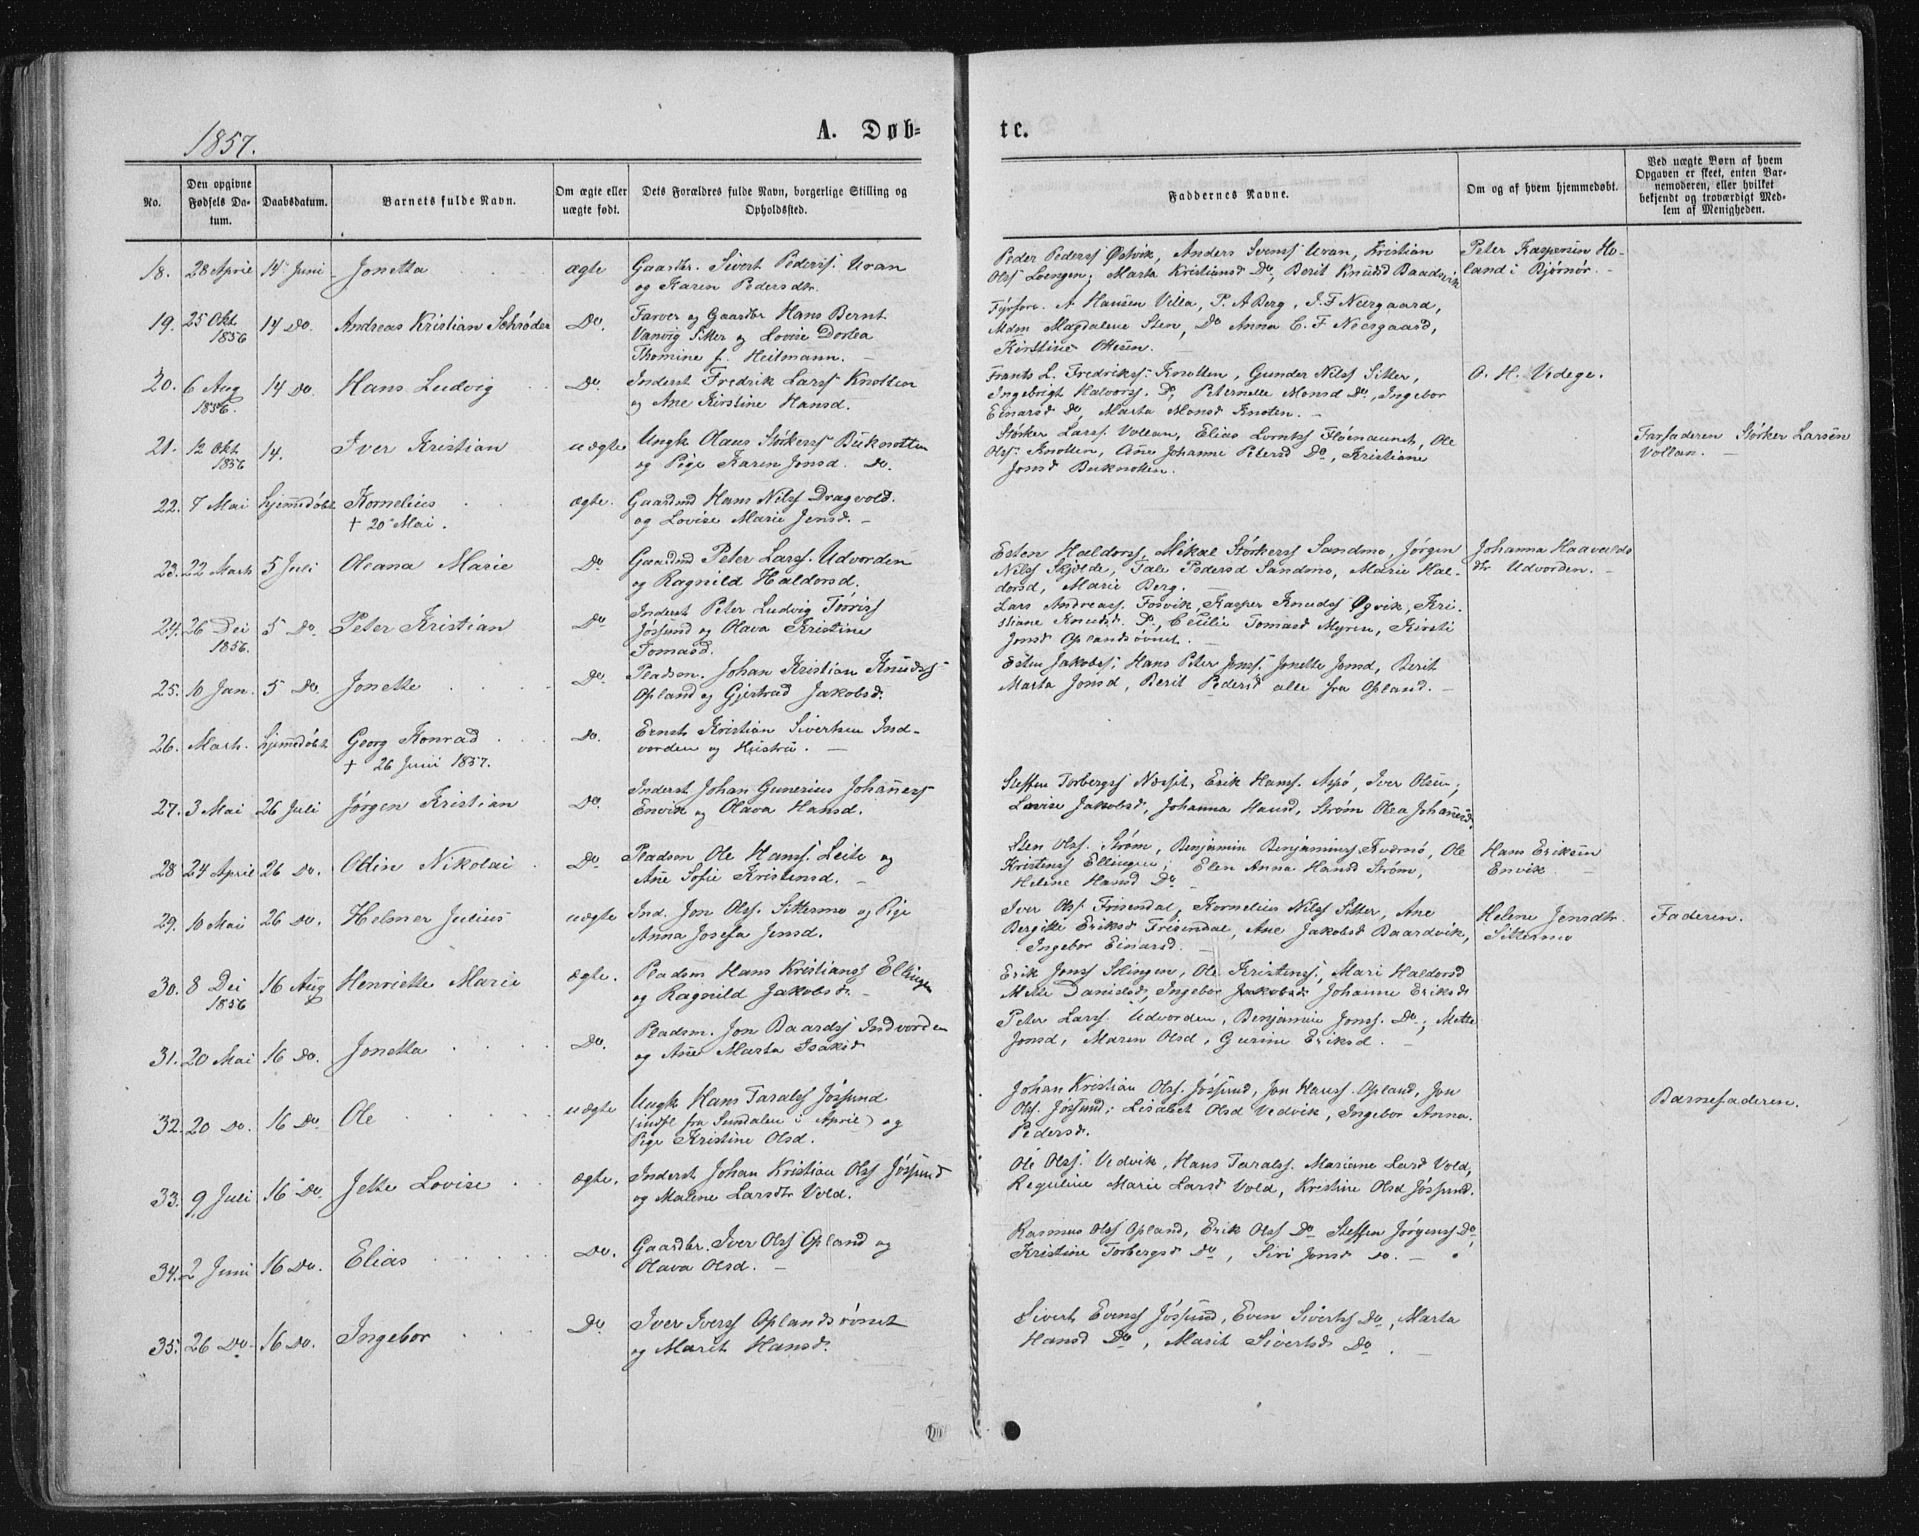 1857.
A. Døb-
te.
No.
Den opgivne
Fødsels Da-
tum.
Daabsdatum.
Barnets fulde Navn.
Om ægte eller
uægte født.
Dets Forældres fulde Navn, borgerlige Stilling og
Opholdssted.
Faddernes Navne.
Om og af hvem hjemmedøbt.
Ved uægte Børn af hvem
Opgaven er skeet, enten Bar-
nemoderen, eller hvilket
bekjendt og troværdigt Med-
lem af Menigheden.
18. 28 April 14 Juni Jonetta ægte Gaardbr. Sivert Peders. Uran
og Karen Pedersdtr.
Peder Peders Østvik, Anders Svens Uran, Kristian
Ols Loengen; Marta Kristiansd Do, Berit Knudsd Baadsvik
Peter Kaspersen Ho-
land i Bjørnør.
19. 25 Okt 1856 14 Do. Andreas Kristian Schrøder Do. Farver og Gaardbr Hans Bernt
Vanvig Sitter og Lovise Dortea
Thomine f. Heitmann.
Fyrforv. A Hansen Villa, P. A Berg, J. F Neergaard,
Mdm Magdalene Sten, Do Anna C. F Neergaard,
Kirstine Ottesen.
20. 6 Aug 1856. 14 Do. Hans Ludvig Do. Inderst Fredrik Larss Knotten
og Ane Kirstine Hansd.
Frants L. Fredrikss Knotten, Gunder Nils Sitter,
Ingebrigt Halvors. D, Peternelle Monsd Do, Ingebor
Einarsd Do, Marta Monsd Knoten.
O. H. Vedege.
21. 12 Okt 1856 14. Iver Kristian uægte Ungk Olaus Størkers Buknotten
og Pige Karen Jonsd. Do.
Størker Larss. Vollan, Elias Lornts Flønaunet, Ole
Ols Knotten, Ane Johanne Petersd Do, Kristiane
Jonsd Buknotten.
Farfaderen Størker Larsen
Vollan.
22. 7 Mai hjemmedøbt Kornelius ægte. Gaardmd Hans Nils Dragvold.
† 20 Mai. og Lovise Marie Jensd.
23. 22 Marts 5 Juli Oleana Marie Do Gaardmd Peter Lars. Udvorden
og Ragnild Haldorsd.
Esten Haldors, Mikal Størkers Sandmo, Jørgen
Nils Skjelde, Tale Pedersd Sandmo, Marie Hal-
dorsd, Marie Berg.
Johanna Haavalds
dtr Udvorden.
24. 26 Dei 1856. 5 Do. Peter Kristian Do Inderst Peter Ludvig Tørris
Jøssund og Olava Kristine
Tomasd.
Lars Andreas. Fosvik, Kasper Knuds Øgvik, Kri-
stiane Knudsd. D, Cecilie Tomasd Myren, Kirsti
Jonsd Oplandsøvnet.
25. 10 Jan. 5 Do. Jonette Do. Pladsm. Johan Kristian Knuds
Opland og Gjertrud Jakobsd.
Esten Jakobs, Hans Peter Jons, Jonette Jonsd, Berit
Marta Jonsd, Berit Pedersd alle fra Opland.
26. Marts. hjemmedøbt Georg Konrad Do. Ernst Kristian Sivertsen Ind-
† 26 Juni 1857. vorden og Hustru.
27. 3 Mai 26 Juli Jørgen Kristian Do. Inderst Johan Gunerius Johanes
Envik og Olava Hansd.
Steffen Torbergs Næsset, Erik Hans. Aspø, Iver Olsen,
Lovise Jakobsd, Johanna Hansd, Strøm Olea Johanesd.
28 24 April 26 Do. Odin Nikolai Do. Pladsm Ole Hans. Leite og
Ane Sofie Kristensd.
Sten Ols. Strøm, Benjamin Benjamins Kvernø, Ole
Kristens Ellingen; Elen Anna Hansd Strøm,
Helene Hansd Do
Hans Eriksen
Envik.
29. 10 Mai 26 Do. Helmer Julius uægte Ind. Jon Ols. Sittermo og Pige
Anna Josefa Jensd.
Iver Ols Frisendal, Kornelius Nils Sitter, Ane
Bergitte Eriksd Frisendal, Ane Jakobsd Baardvik,
Ingebor Einarsd.
Helene Jensdtr.
Sittermo
Faderen.
30. 8 Dei 1856 16 Aug Henriette Marie ægte. Pladsm Hans Kristians Ellingen
og Ragnild Jakobsd.
Erik Jons Skingen, Ole Kristens, Mari Haldorsd
Mette Danielsd, Ingebor Jakobsd Johanne Eriksd
31. 20 Mai 16 Do. Jonetta Do. Pladsm. Jon Baards Indvorden
og Ane Marta Isaksd
Peter Lars. Udvorden, Benjamin Jons. Do, Mette
Jonsd, Maren Olsd, Gurine Eriksd.
32. 20 Do. 16 Do Ole uægte Ungk Hans Tarals Jøssund
(indfl fra Sundalen i April) og
Pige Kristine Olsd.
Johan Kristian Ols. Jøssund, Jon Hans. Opland, Jon
Ols. Jøssund; Lisabet Olsd Vedvik, Ingebor Anna
Pedersd.
Barnefaderen.
33. 9 Juli 16 Do. Jette Lovise ægte. Inderst Johan Kristian Ols Jøssund
og Malene Larsdtr Vold.
Ole Ols. Vedvik, Hans Tarals. Mariane Larsd Vold,
Reguline Marie Larsd Vold, Kristine Olsd Jøssund.
34. 2 Juni 16 Do. Elias Do. Gaardbr. Iver Ols Opland og
Olava Olsd.
Rasmus Ols Opland, Erik Ols Do Steffen Jørgens Do,
Kristine Torbergsd Do, Siri Jonsd Do.
35. 26 Do. 16 Do. Ingebor Do Iver Ivers Oplandsøvnet
og Marit Hansd.
Sivert Evens Jøssund, Even Siverts Do, Marta
Hansd Do, Marit Sivertsd Do.